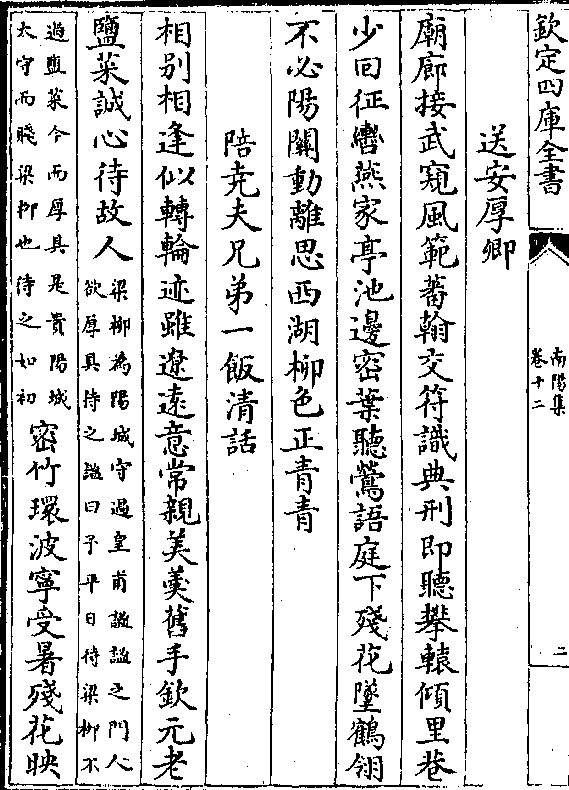 欽定四庫全書
南陽集
卷十二
二
送安厚卿
廟廊接武窺風範蕃翰交符識典刑即聽攀轅傾里巷
少回征轡燕家亭池邊密葉聽鶯語庭下殘花墜鶴翎
不必陽關動離思西湖柳色正青青
陪堯夫兄弟一飯清話
相別相逢似轉輪迹雖遼遠意常親美羮舊手欽元老
鹽菜誠心待故人
梁柳為陽城守過皇甫謐謐之門人
欲厚具待之謐曰予平日待梁柳不
過鹽菜今而厚具是貴陽城
太守而賤梁柳也待之如初
密竹環波寧受暑殘花映